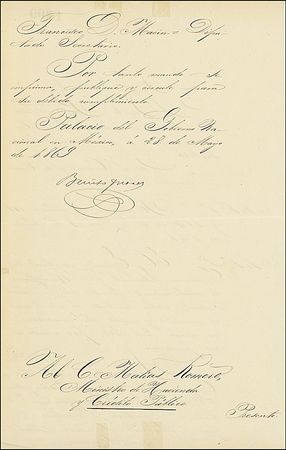 Francisco D. Macin = Dipu-
tado Secretario.
Por tanto mando se
imprima, publique y circule para
su debido cumplimiento.
Palacio del Gobierno Na-
cional en México, á 28 de Mayo
de 1869
Benito Juarez
Al C. Matias Romero,
Ministro de Hacienda
y Crédito Público
Presente.